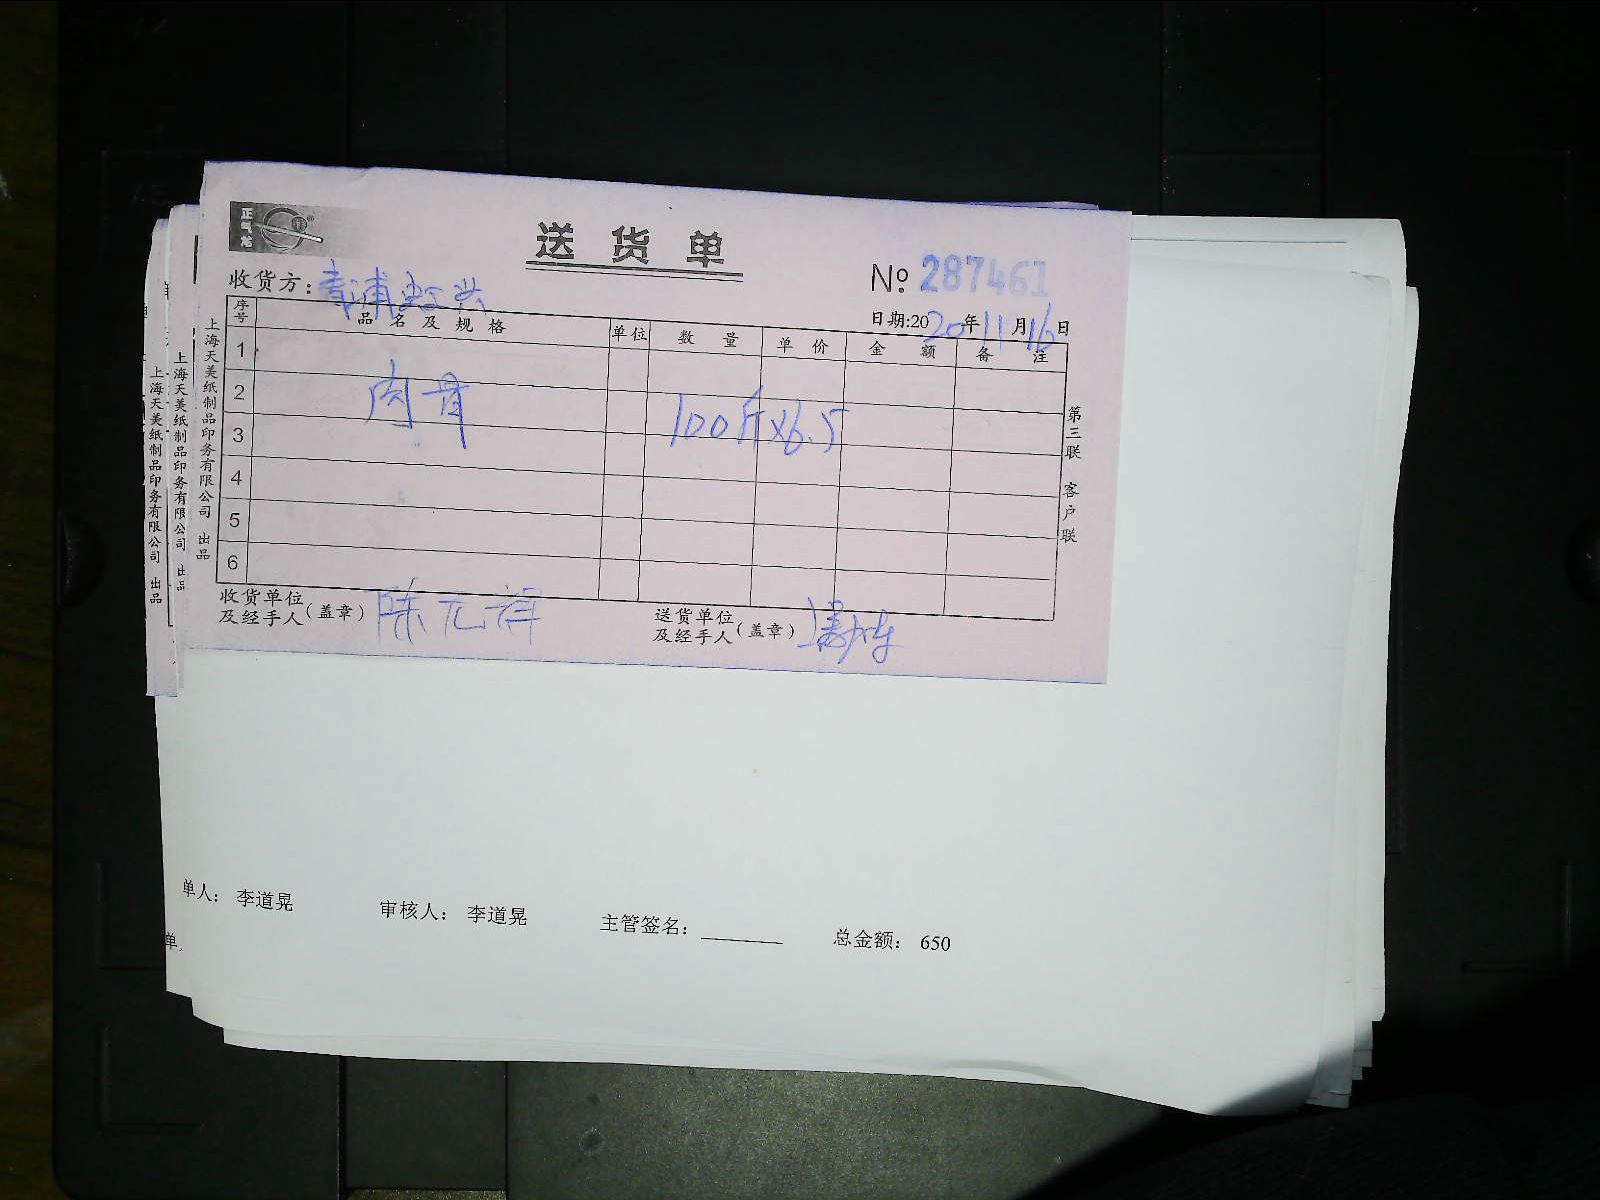 正气龙
送货单
收货方：青浦虹兴
№ 287461
日期:2020年11月16日
序号 品名及规格 单位 数量 单价 金额 备注
1
2 肉骨 100斤×6.5
3
4
5
6
收货单位及经手人(盖章) 陈元祥
送货单位及经手人(盖章)
第三联 客户联
上海天美纸制品印务有限公司 出品
上海天美纸制品印务有限公司 出品
上海天美纸制品印务有限公司 出品
单人： 李道晃 审核人： 李道晃 主管签名：________ 总金额： 650
单